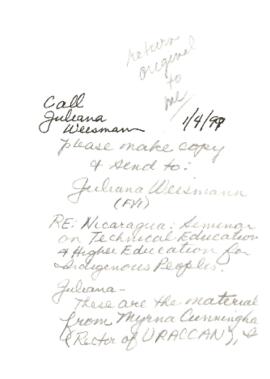 return
original
to
me/
Call
Juliana
Weismann 1/4/98
Please make copy
& send to:
Juliana Weismann
(FYI)
RE: Nicaragua: Seminar
on Technical Education
& Higher Education for
Indigenous Peoples.
Juliana-
These are the material
from Myrna Cunningha
(Rector of URACCAN),